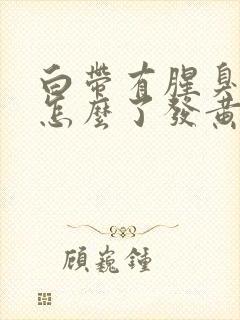 白帶有腥臭
怎麼了發黃
顧巍鍾